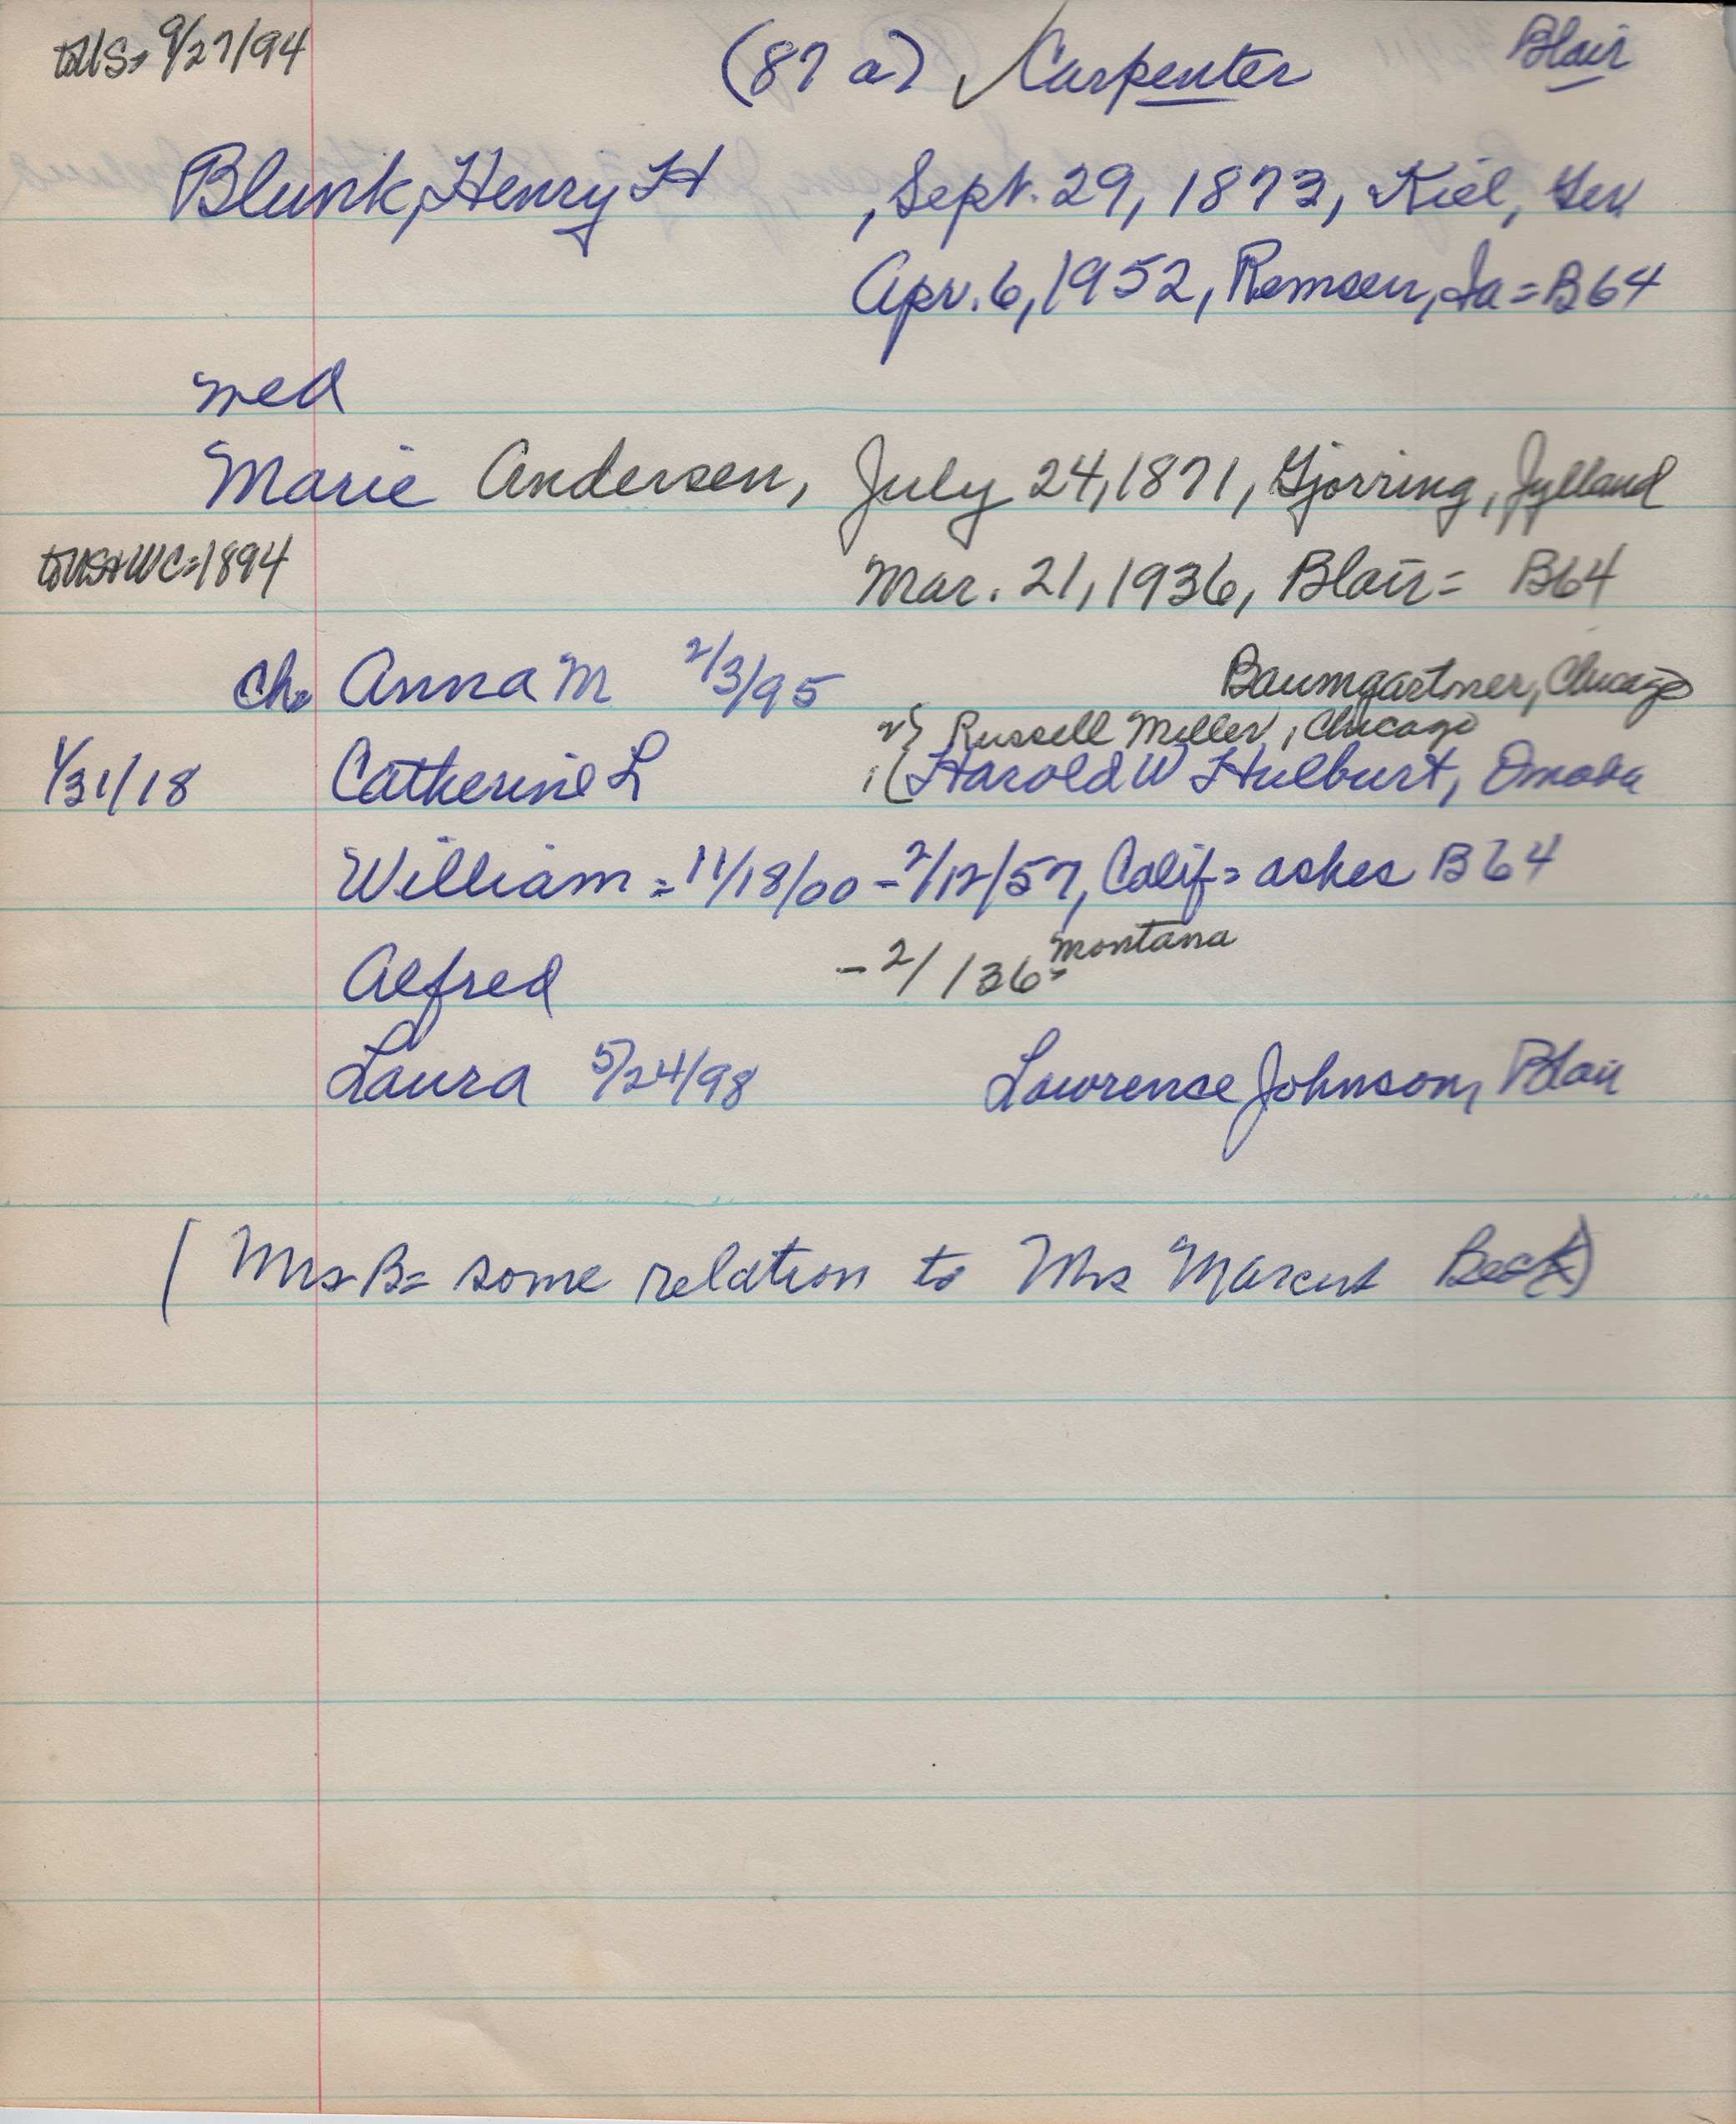 to US= 9/27/94 (87 a) ✓ Carpenter Blair
Blunk, Henry H , Sept. 29, 1873, Kiel, Ger
Apr. 6, 1952, Remsen, Ia = B64
med
Marie Andersen, July 24, 1871, Hjorring, Jylland
to US+WC=1894 Mar. 21, 1936, Blair = B64
ch. Anna M 2/3/95 Baumgartner, Chicago
2) Russell Miller, Chicago
1/31/18 Catherine L 1) Harold W Hulburt, Omaha
William = 11/18/00 - 2/12/57, Calif = ashes B64
Alfred - 2/ /36= Montana
Laura 5/24/98 Lawrence Johnson, Blair
(Mrs B= some relation to Mrs Marcus Beck)